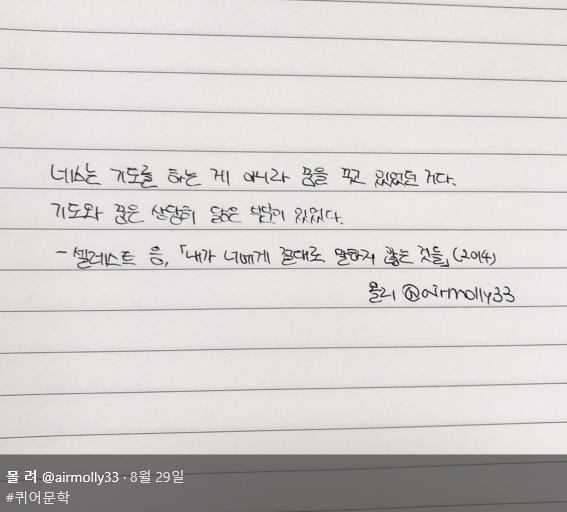 네스는 기도를 하는 게 아니라 꿈을 꾸고 있었던 거다.
기도와 꿈은 상당히 닮은 법이 있었다.
- 셀레스트 응, 「내가 너에게 절대로 말하지 않는 것들」(2014)
몰리 @airmolly33
몰 려 @airmolly33 · 8월 29일
#퀴어문학